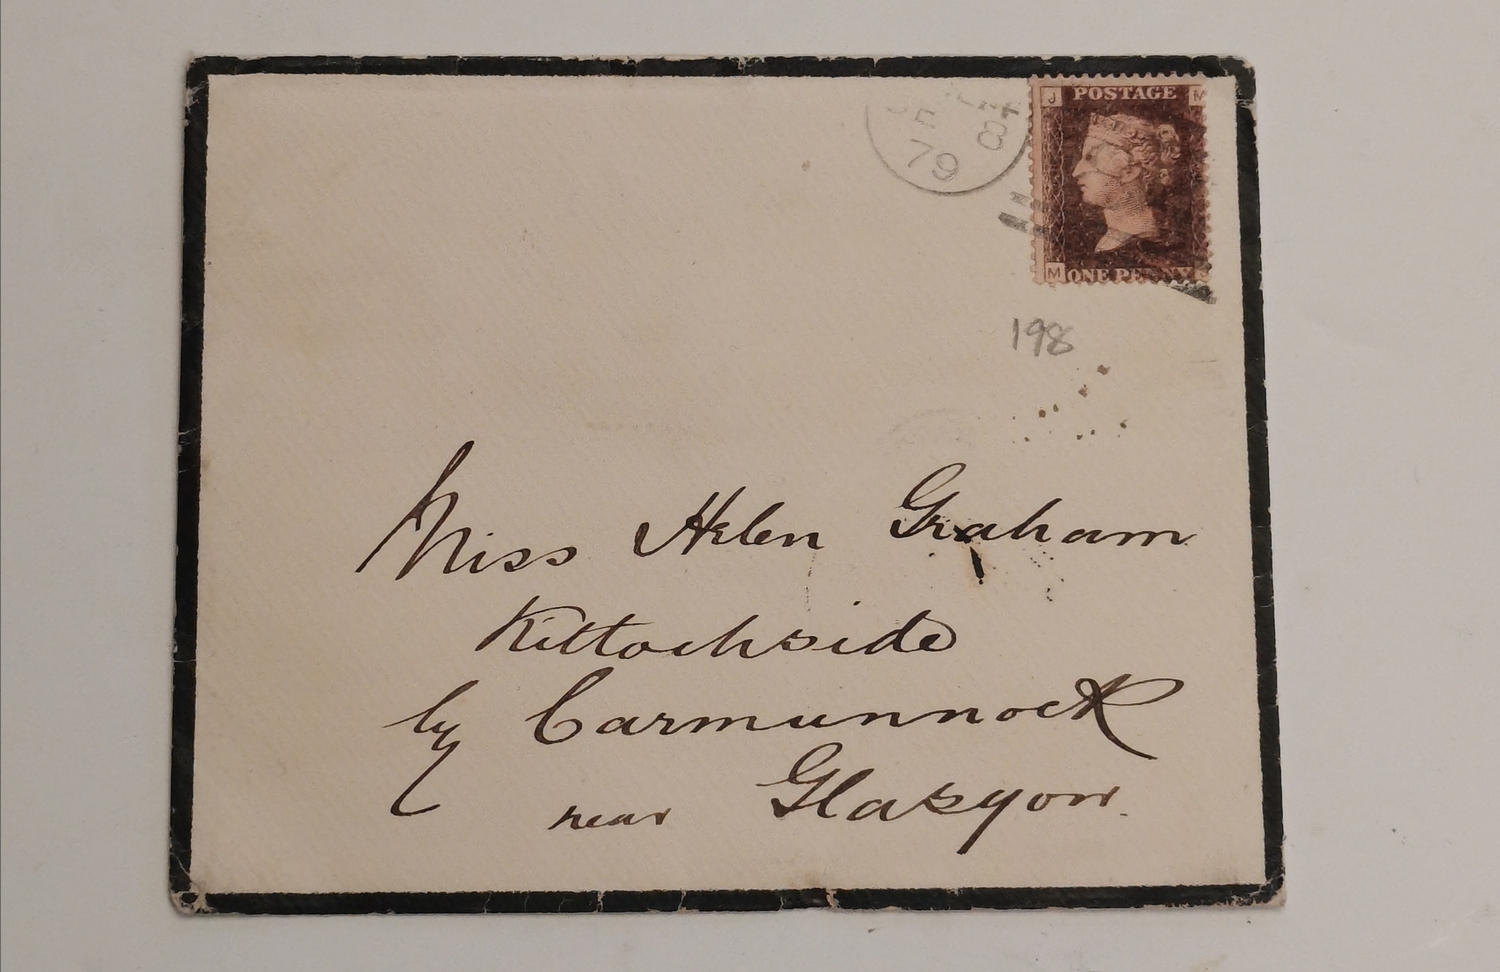 J POSTAGE M
79 8
M ONE PENNY
198
Miss Helen Graham
Kittochside
by Carmunnock
near Glasgow.